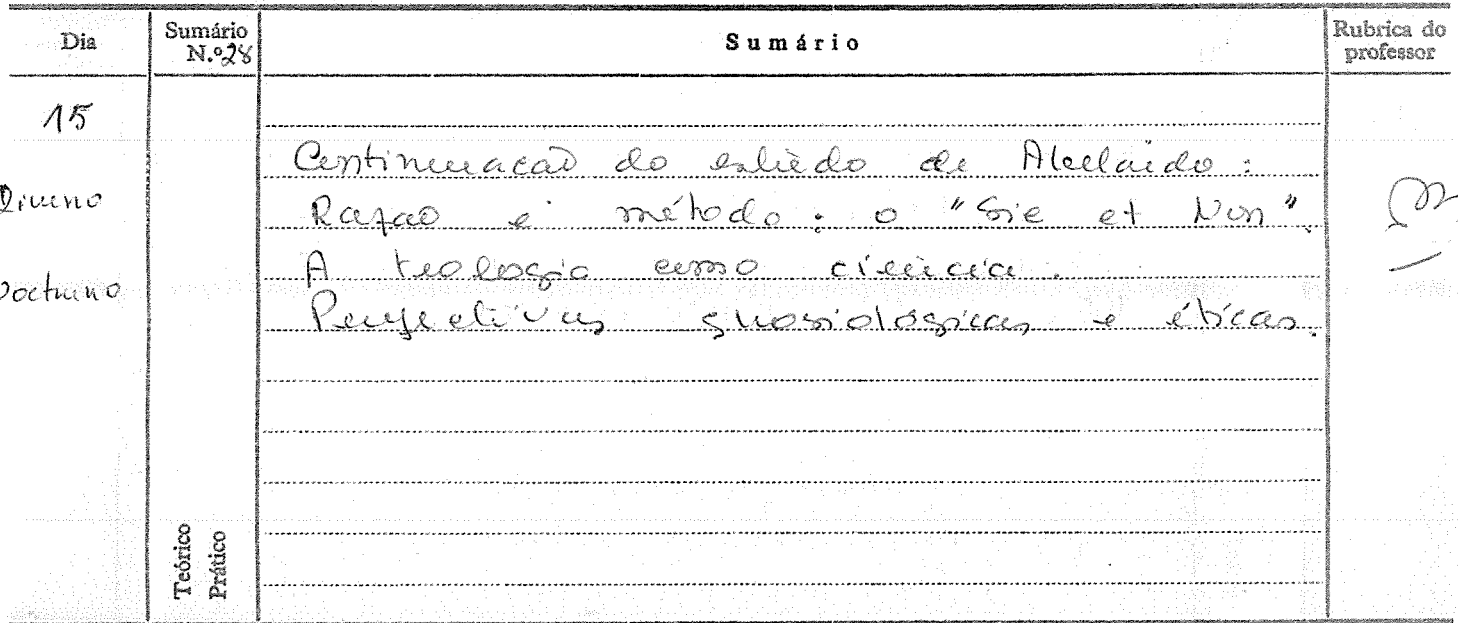 Dia
Sumário
N.º 28
Sumário
Rubrica do
professor
15
Continuação do estudo de Abelardo:
Diurno
Razão e método: o "Sic et Non".
A teologia como ciência.
Nocturno
Perspectivas gnosiológicas e éticas.
Teórico
Prático